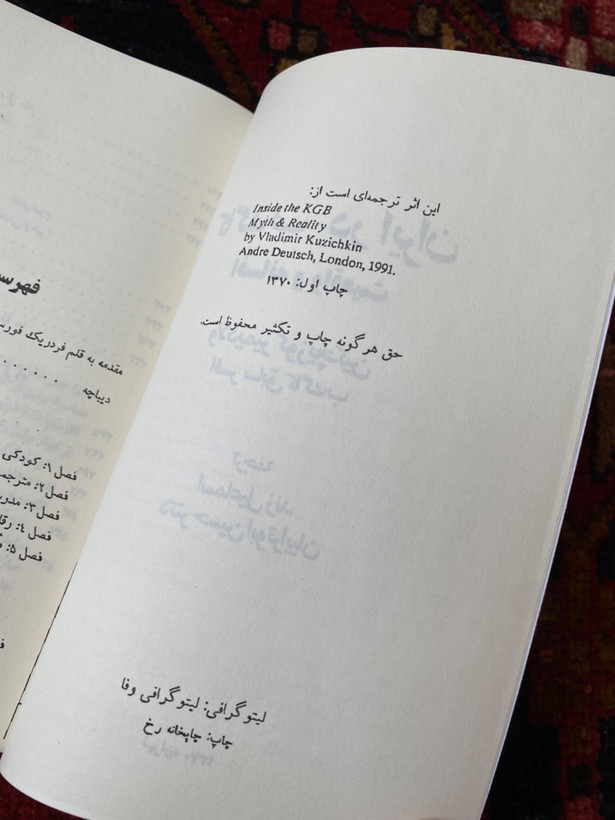 این اثر ترجمه‌ای است از:
Inside the KGB
Myth & Reality
by Vladimir Kuzichkin
Andre Deutsch, London, 1991.
چاپ اول: ۱۳۷۰
حق هر گونه چاپ و تکثیر محفوظ است.
لیتوگرافی: لیتوگرافی وفا
چاپ: چاپخانه رخ
مقدمه به قلم فردریک فور
دیباچه . . . . . .
فصل ۱: کودکی
فصل ۲: مترجم
فصل ۳: مدر
فصل ٤: رقا
فصل ۵: